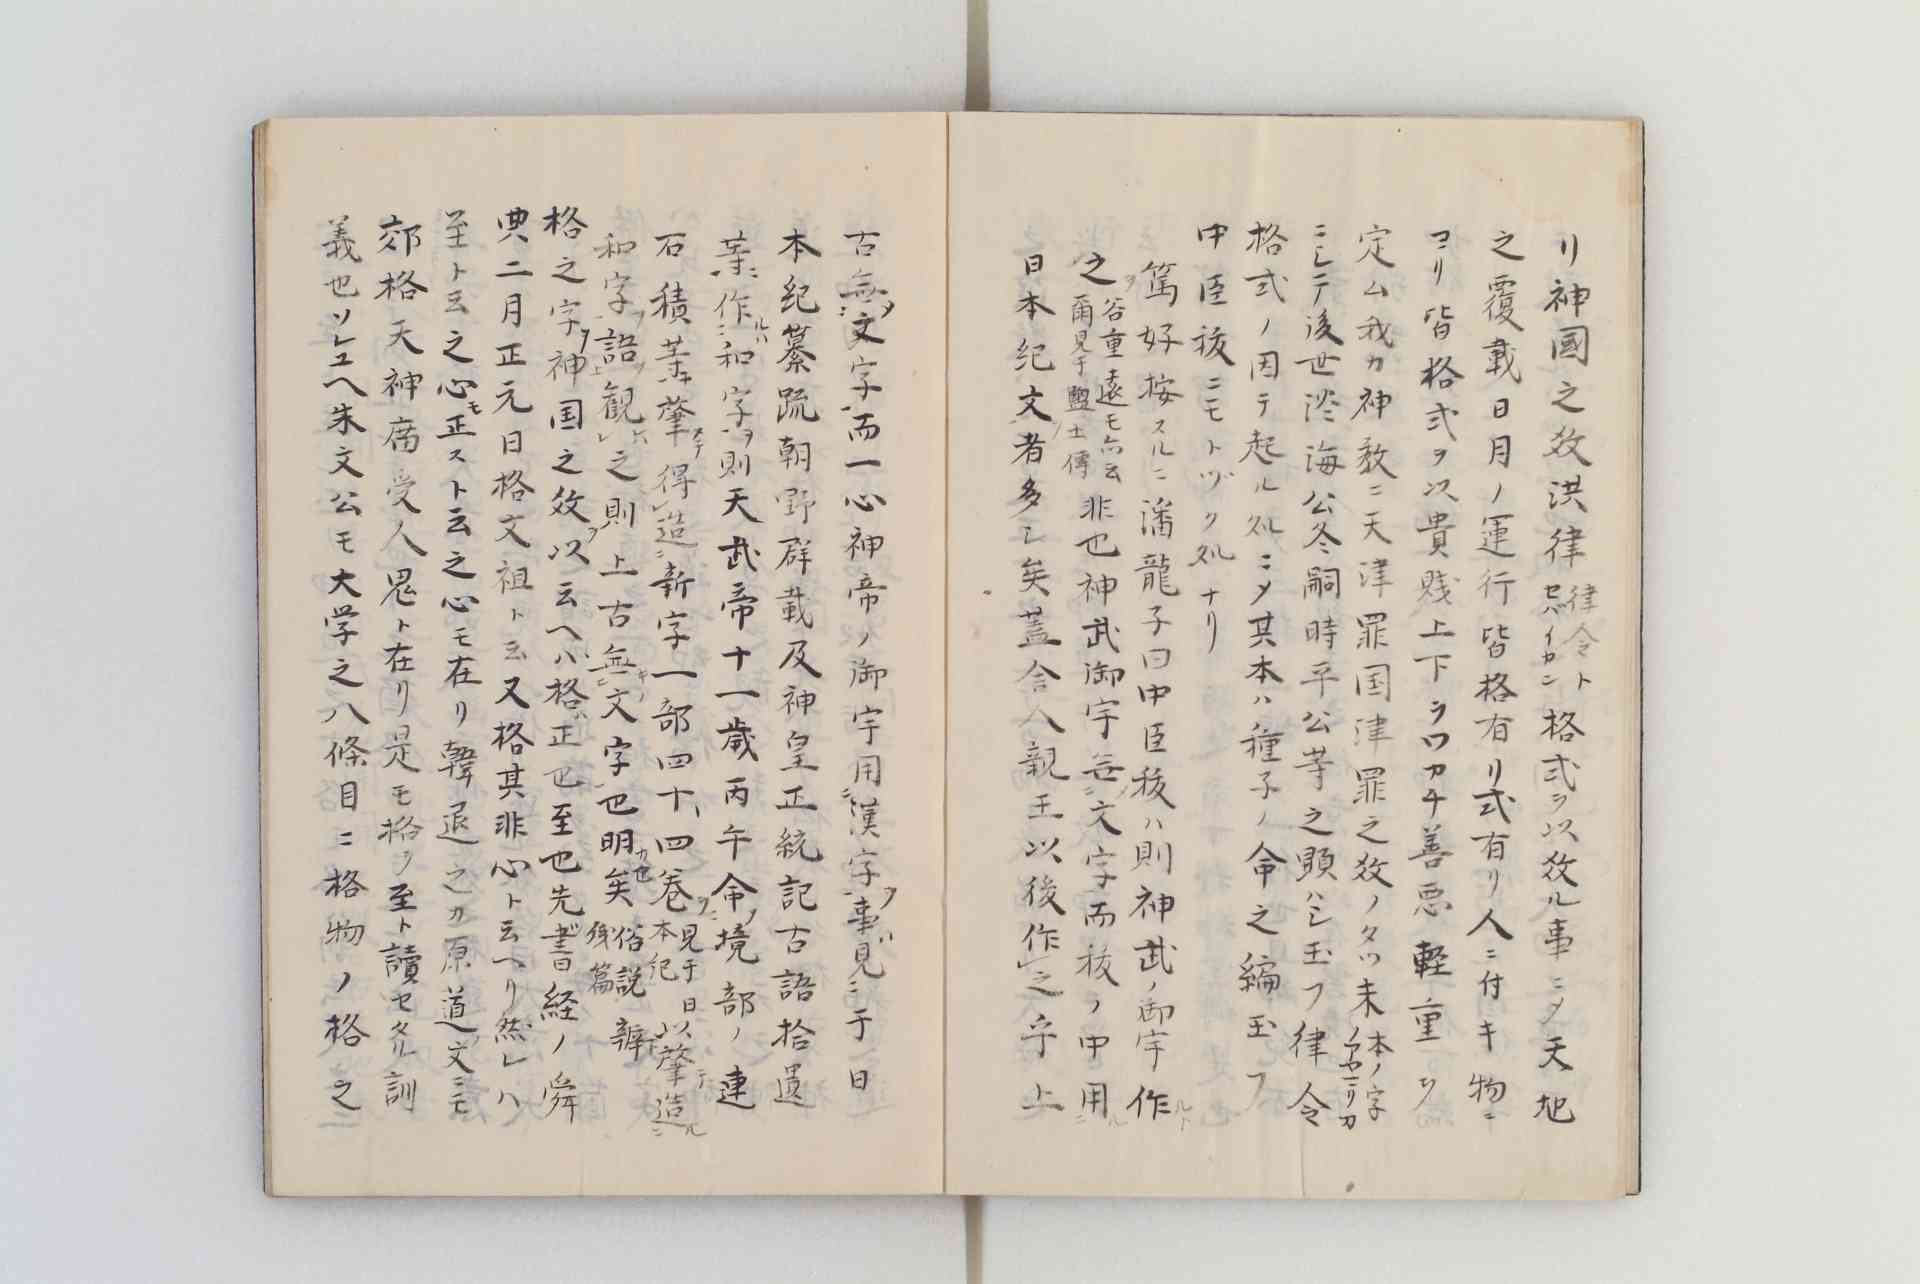 リ神國之敎洪律律令トセバイカン格式ヲ以敎ル事ニメ天地
之覆載日月ノ運行皆格有リ式有リ人ニ付キ物ニ
コリ皆格式ヲ以貴賤上下ラワカチ善悪軽重ヲ
定ム我カ神敎ニ天津罪国津罪之敎ノタツ未本ノ字
ニシテ後世淡海公冬嗣時平公䓁之顕ハシ玉フ律令
格式ノ因テ起ル処ニメ其本ハ種子ノ命之編玉フ
中臣祓ニモトヅク処ナリ
篤好按スルニ潘龍子曰中臣祓ハ則神武ノ御宇作ルト
之谷重遠モ亦云爾見于鹽土傳非也神武御宇無文字而祓ノ中用ル
日本紀文者多シ矣蓋舎人親王以後作之乎上
古無文字而一心神帝ノ御宇用漢字事見于日
本紀纂疏朝野群載及神皇正統記古語拾遺
䓁作ルハ和字ヲ則天武帝十一歳丙午命境部ノ連
石積䓁肇テ得造新字一部四十四巻見于日本紀以肇テ造ル
和字語観之則上古無文字也明矣俗説辨残篇
格之字ヲ神国之敎ヲ以云ヘハ格ハ正也至也先書経ノ舜
典二月正元日格文祖ト云又格其非心ト云ヘリ然レハ
至ト云之心モ正スト云之心モ在リ韓退之カ原道ノ文ニモ
郊格天神庿受人鬼ト在リ是モ格ヲ至ト讀セタル訓
義也ソレユヘ朱文公モ大学之八條目ニ格物ノ格之